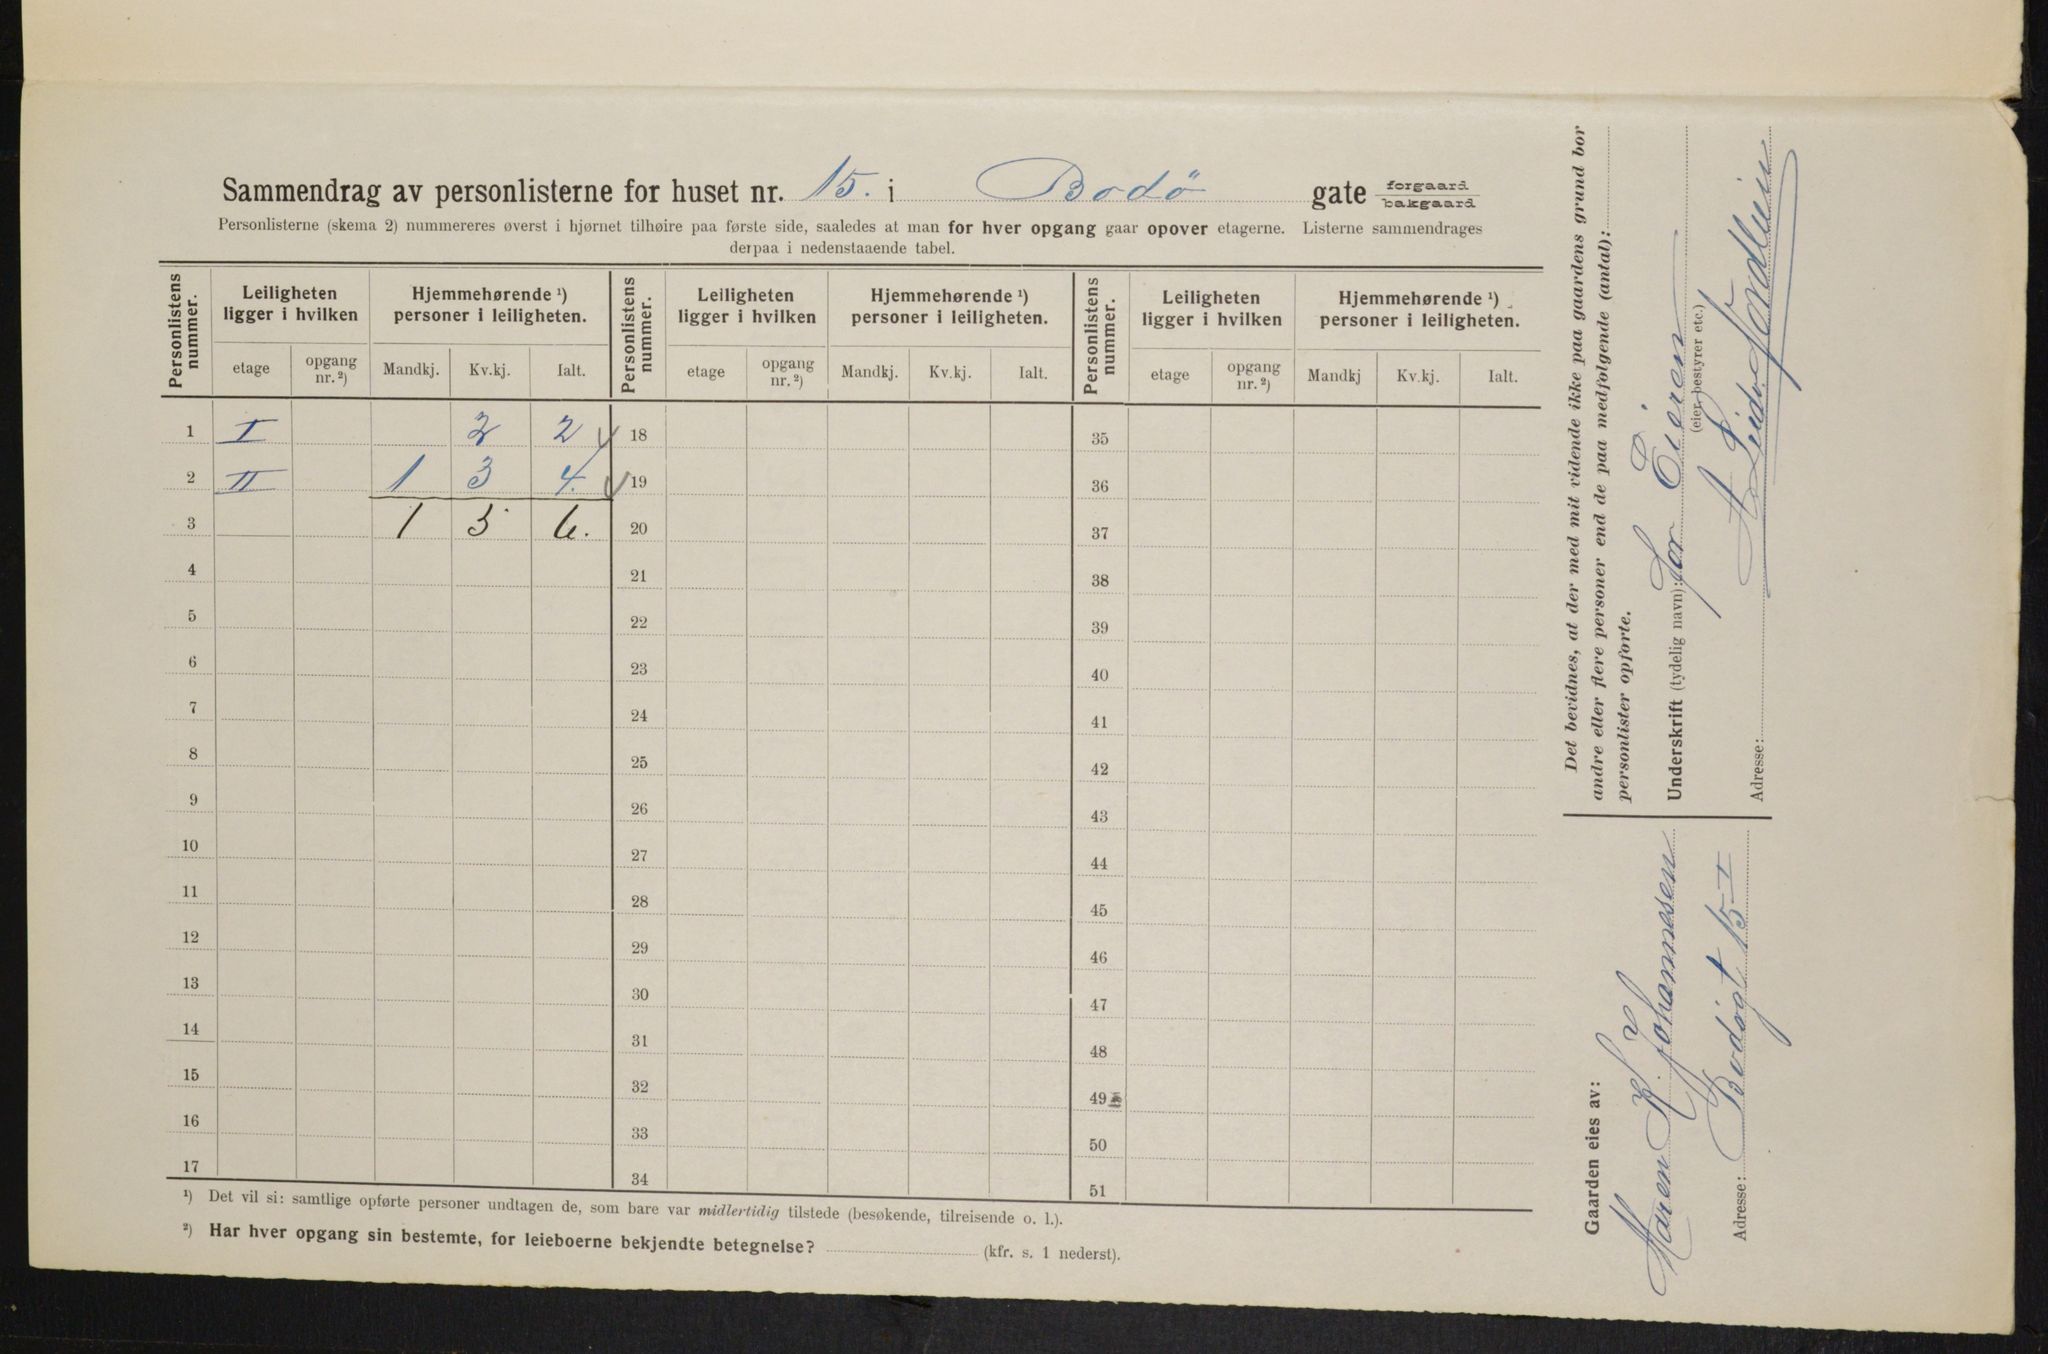 Sammendrag av personlisterne for huset nr. 15. i Bodö gate forgaard bakgaard
Personlisterne (skema 2) nummereres øverst i hjørnet tilhøire paa første side, saaledes at man for hver opgang gaar opover etagerne. Listerne sammendrages
derpaa i nedenstaaende tabel.
Personlistens nummer. Leiligheten ligger i hvilken Hjemmehørende ¹) personer i leiligheten. Personlistens nummer. Leiligheten ligger i hvilken Hjemmehørende ¹) personer i leiligheten. Personlistens nummer. Leiligheten ligger i hvilken Hjemmehørende ¹) personer i leiligheten.
etage opgang nr. ²) Mandkj. Kv.kj. Ialt. etage opgang nr. ²) Mandkj. Kv.kj. Ialt. etage opgang nr. ²) Mandkj Kv.kj. Ialt.
1 I 2 2 18 35
2 II 1 3 4. 19 36
3 1 5 6. 20 37
4 21 38
5 22 39
6 23 40
7 24 41
8 25 42
9 26 43
10 27 44
11 28 45
12 29 46
13 30 47
14 31 48
15 32 49
16 33 50
17 34 51
¹) Det vil si: samtlige opførte personer undtagen de, som bare var midlertidig tilstede (besøkende, tilreisende o. l.).
²) Har hver opgang sin bestemte, for leieboerne bekjendte betegnelse? (kfr. s. 1 nederst).
Det bevidnes, at der med mit vidende ikke paa gaardens grund bor
andre eller flere personer end de paa medfølgende (antal):
personlister opførte.
Underskrift (tydelig navn): for Eieren
(eier, bestyrer etc.)
Adresse:
Gaarden eies av:
Maren K. Johannesen
Adresse: Bodøgt 15 I